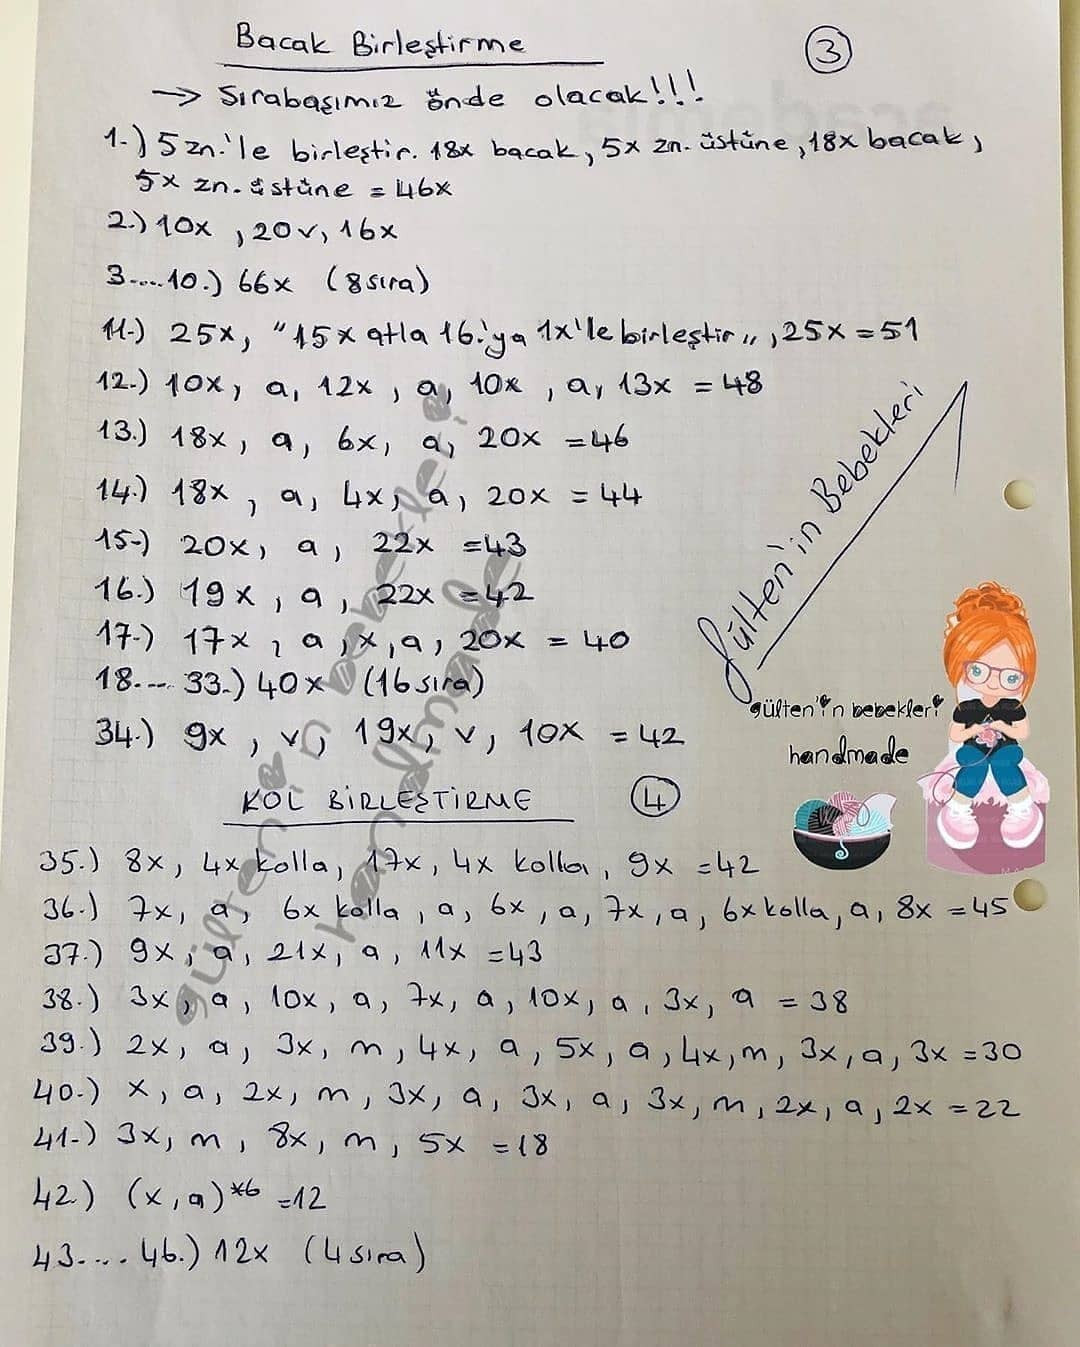 Bacak Birleştirme
3
→ Sırabaşımız önde olacak!!!
1.) 5 zn.'le birleştir. 18x bacak, 5x zn. üstüne, 18x bacak,
5x zn. üstüne = 46x
2.) 10x, 20v, 16x
3....10.) 66x (8 sıra)
11.) 25x, "15x atla 16.'ya 1x'le birleştir", 25x = 51
12.) 10x, a, 12x, a, 10x, a, 13x = 48
13.) 18x, a, 6x, a, 20x = 46
14.) 18x, a, 4x, a, 20x = 44
15.) 20x, a, 22x = 43
16.) 19x, a, 22x = 42
17.) 17x, a, x, a, 20x = 40
18.... 33.) 40x (16 sıra)
34.) 9x, v, 19x, v, 10x = 42
Gülten'in Bebekleri
gülten'in bebekleri
handmade
gülten'in bebekleri
handmade
KOL BİRLEŞTİRME
4
35.) 8x, 4x kolla, 17x, 4x kolla, 9x = 42
36.) 7x, a, 6x kolla, a, 6x, a, 7x, a, 6x kolla, a, 8x = 45
37.) 9x, a, 21x, a, 11x = 43
38.) 3x, a, 10x, a, 7x, a, 10x, a, 3x, a = 38
39.) 2x, a, 3x, m, 4x, a, 5x, a, 4x, m, 3x, a, 3x = 30
40.) x, a, 2x, m, 3x, a, 3x, a, 3x, m, 2x, a, 2x = 22
41.) 3x, m, 8x, m, 5x = 18
42.) (x, a)*6 = 12
43.... 46.) 12x (4 sıra)